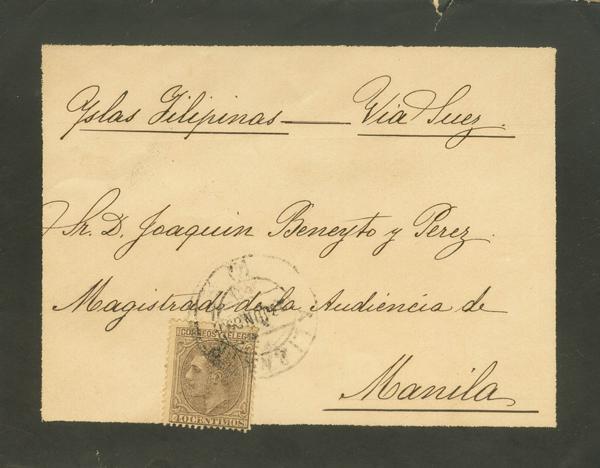 Yslas Filipinas — Via Suez.
Sr. D. Joaquin Beneyto y Perez.
Magistrado de la Audiencia de
Manila
CORREOS Y TELEGS
40 CENTIMOS